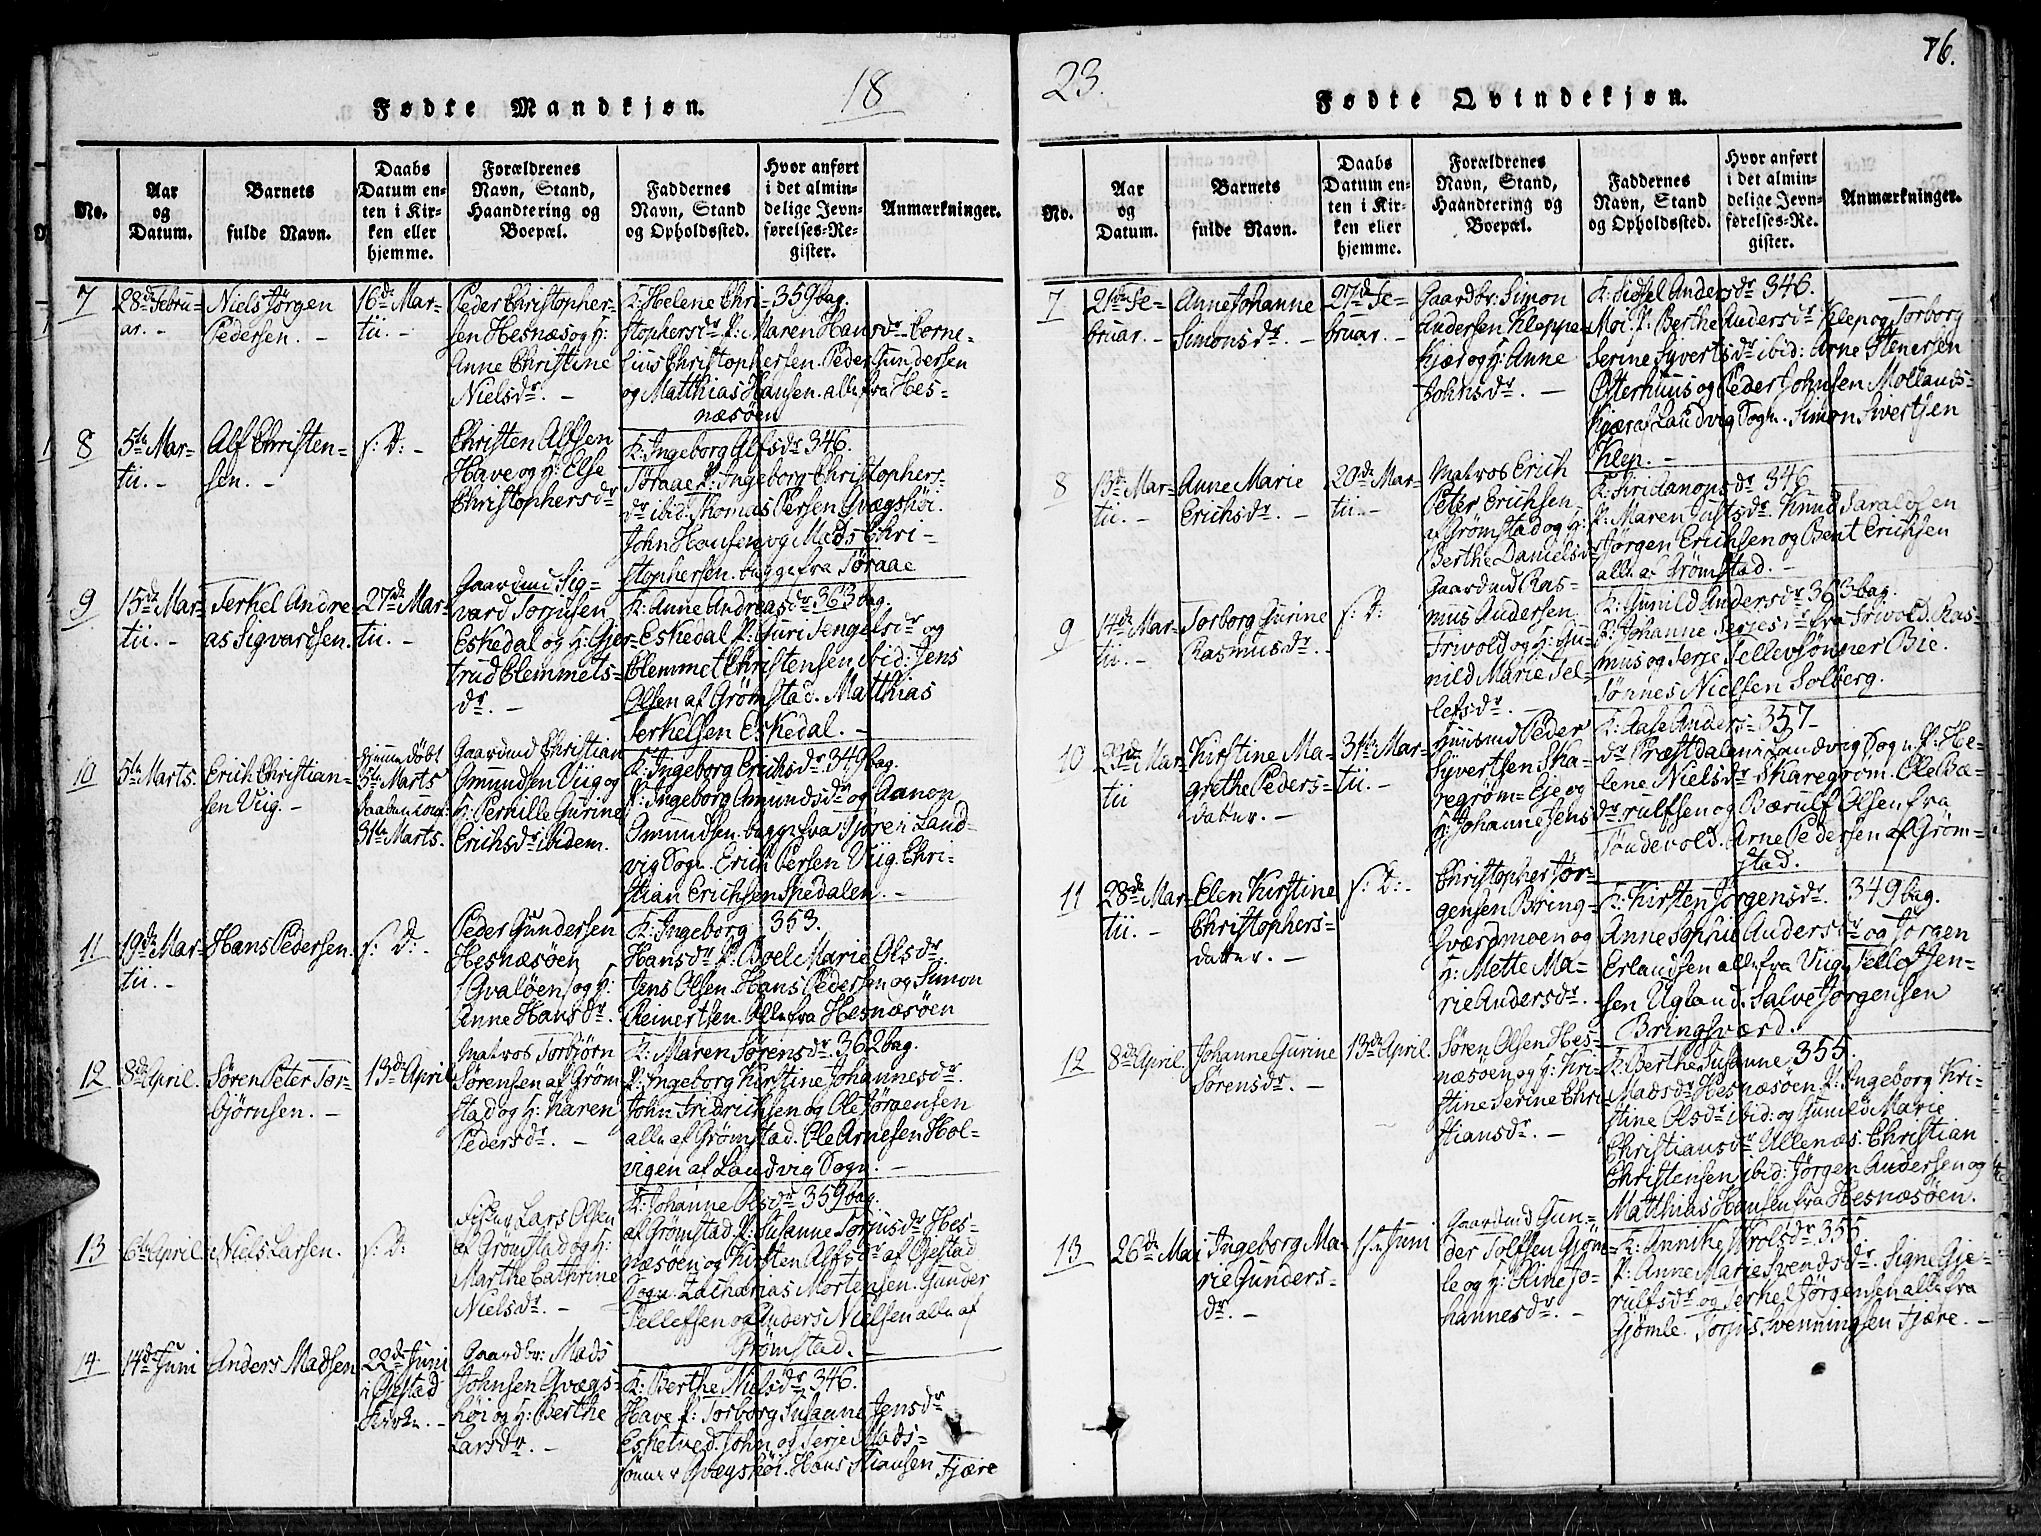 18
Fødte Mandkjøn.
No.
Aar
og
Datum.
Barnets
fulde Navn.
Daabs
Datum en-
ten i Kir-
ken eller
hjemme.
Forældrenes
Navn, Stand,
Haandtering og
Boepæl.
Faddernes
Navn, Stand
og Opholdssted.
Hvor anført
i det almin-
delige Jevn-
førelses-Re-
gister.
Anmærkninger.
7
28de Febru-
ar. -
Niels Jørgen
Pedersen. -
16de Mar-
tii. -
Peder Christopher-
sen Hesnæs og H:
Anne Christine
Nielsdr. -
K: Helene Chri- 359 bag.
stophersdr P: Maren Hansdr. Corne-
lius Christophersen. Peder Gundersen
og Matthias Hansen. alle fra Hes-
næsöen
8
5te Mar-
tii. -
Alf Christen-
sen. -
s: D: -
Christen Alfsen
Have og H: Else
Christophersdr
K: Ingeborg Alfsdr 346.
Töraae P: Ingeborg Christophers-
dr ibid: Thomas Persen Qvægshöi.
John Hansen og Mads Chri-
stophersen. begge fra Töraae
9
15de Mar-
tii. -
Terkel Andre-
as Sigvardsen.
27de Mar-
tii. -
Gaardmd Sig-
vard Torjusen
Eskedal og H: Gjer-
trud Clemmets-
dr. -
K: Anne Andreasdr 363 bag.
Eskedal P: Guri Tengelsdr og
Clemmet Christensen ibid: Jens
Olsen af Grömstad. Matthias
Terkelsen Eskedal. -
10
5te Marts.
Erich Christian-
sen Viig. -
hjemmedöbt
5te Marts
31te Marts.
Gaardmd Christian
Omundsen Viig og
H: Pernille Gurine
Erichsdr ibidem.
K: Ingeborg Erichsdr 349 bag.
P: Ingeborg Omundsdr og Aanon
Omundsen begge fra Tjore i Land-
vig Sogn. Erich Persen Viig. Chri-
stian Erichsen Spedalen. -
11
19de Mar-
tii. -
Hans Pedersen.
s: D: -
Peder Gundersen
Hesnæsöen
(Qvalöen) og H:
Anne Hansdr.
K: Ingeborg 353.
Hansdr P: Boel Marie Olsdr.
Jens Olsen. Hans Pedersen og Simon
Reinertsen. Alle fra Hesnæsöen
12
8de April.
Sören Peter Tor-
björnsen. -
13de April
Matros Torbjörn
Sörensen af Gröm-
stad og H: Karen
Pedersdr. -
K: Maren Sörensdr. 362 bag.
P: Ingeborg Kirstine Johannesdr.
John Fridrichsen og Ole Jörgensen
alle af Grömstad. Ole Arnesen Hol-
vigen af Landvig Sogn. -
13
6te April.
Niels Larsen.
s: D:
Fisker Lars Olsen
af Grömstad og H:
Marthe Cathrine
Nielsdr. -
K: Johanne Olsdr 359 bag.
af Grömstad P: Susanne Torjusdr Hes-
næsöen og Kirsten Alfsdr af Øjestad
Sogn. Zacharias Mortensen. Gunder
Tellefsen og Anders Nielsen alle af
Grömstad. -
14
14de Juni
Anders Madsen
22de Juni
i Øjestad
Kirke. -
Gaardbr: Mads
Johnsen Qvægs-
höi og H: Berthe
Larsdr. -
K: Berthe Nielsdr 346.
Have P: Torborg Susanne Jensdr
Esketved. John og Terje Mads-
sönner Qvægshöi. Hans Stiansen Fjære
23.
76.
Fødte Qvindekjøn.
No.
Aar
og
Datum.
Barnets
fulde Navn.
Daabs
Datum en-
ten i Kir-
ken eller
hjemme.
Forældrenes
Navn, Stand,
Haandtering og
Boepæl.
Faddernes
Navn, Stand
og Opholdssted.
Hvor anført
i det almin-
delige Jevn-
førelses-Re-
gister.
Anmærkninger.
7
21de Fe-
bruar. -
Anne Johanne
Simonsdr. -
27de Fe-
bruar. -
Gaardbr: Simon
Andersen Kleppe-
kjær og H: Anne
Johnsdr. -
K: Sidsel Andersdr 346.
Moi. P: Berthe Andersdr Klep og Torborg
Serine Syvertsdr ibid: Arne Stenersen
Østerhuus og Peder Johnsen Mollands-
kjær af Landvig Sogn. Simon Sivertsen
Klep. -
8
13de Mar-
tii. -
Anne Marie
Erichsdr. -
20de Mar-
tii. -
Matros Erich
Peter Erichsen
af Grömstad og H:
Berthe Danielsdr
K: Siri Aanonsdr 346
P: Maren Justsdr. Knud Saraldsen
Jörgen Erichsen og Bent Erichsen
alle af Grömstad. -
9
14de Mar-
tii. -
Torborg Gurine
Rasmusdr. -
s: D:
Gaardmd Ras-
mus Andersen
Trivold og H: Gu-
nild Marie Tel-
lefsdr. -
K: Gunild Andersdr 363 bag.
P: Johanne Terjesdr fra Trivold. Ras-
mus og Terje Tellevsönner Bie.
Tönnes Nielsen Solberg.
10
23de Mar-
tii
Kirstine Ma-
grethe Peders-
datter. -
31te Mar-
tii. -
Huusmd Peder
Syvertsen Ska-
regröm-Eje og
H: Johanne Jensdr
K: Aase Anders- 357-
dr Præstdalen i Landvig Sogn. P: He-
lene Nielsdr Skaregröm. Ole Bæ-
rulfsen og Bærulf Olsen fra
Töndevold. Arne Pedersen af Gröm-
stad.
11
28de Mar-
tii. -
Elen Kirstine
Christophers-
datter. -
s: D: -
Christopher Jör-
gensen Bring-
sværdmoen og
H: Mette Ma-
rie Andersdr.
K: Kirsten Jörgensdr. 349 bag.
Anne Sophie Andersdr og Jörgen
Erlandsen alle fra Viig. Tellef Jen-
sen Ugland. Salve Jörgensen
Bringsværd.
12
8de April.
Johanne Gurine
Sörensdr. -
13de April.
Sören Olsen Hes-
næsöen og H: Kri-
stine Serine Chri-
stiansdr. -
K: Berthe Susanne 355.
Madsdr Hesnæsöen P: Ingeborg Kri-
stine Olsdr ibid: og Gunild Marie
Christiansdr Ullenæs. Christian
Christensen ibid: Jörgen Andersen og
Matthias Hansen fra Hesnæsöen.
13
26de Mai
Ingeborg Ma-
rie Gunders-
dr. -
1ste Juni
Gaardmd Gun-
der Tolfsen Gjöm-
le og H: Rine Jo-
hannesdr. -
K: Annike Krolsdr 355.
P: Anne Marie Svendsdr. Signe Gje-
rulfsdr og Terkel Jörgensen alle fra
Gjömle. Torjus Svenningsen Fjære. -